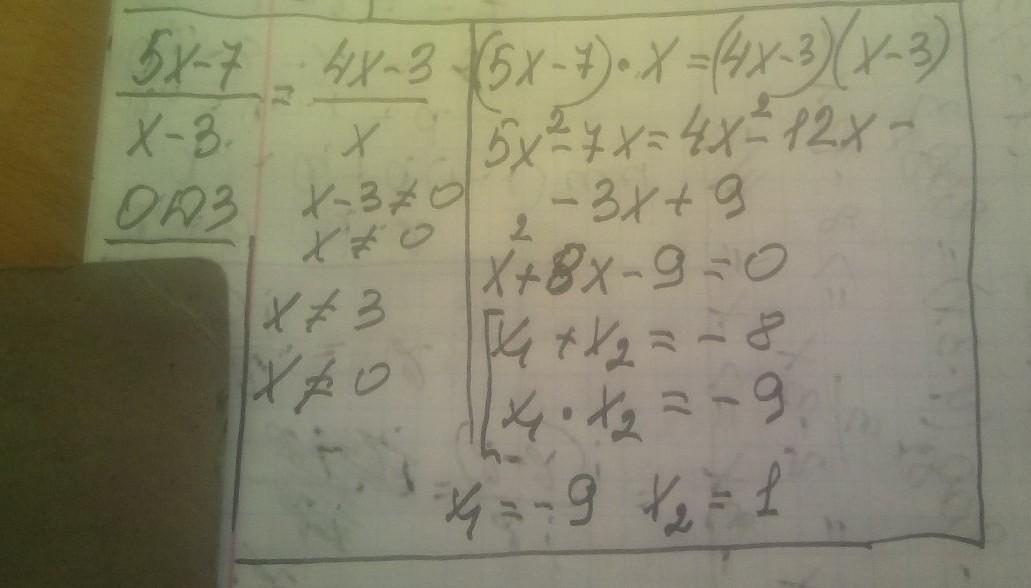 5x-7 / x-3 = 4x-3 / x
ОДЗ
x-3≠0
x≠0
x≠3
x≠0
(5x-7)·x=(4x-3)(x-3)
5x²-7x=4x²-12x-
-3x+9
x²+8x-9=0
[x₁+x₂=-8
x₁·x₂=-9
x₁=-9 x₂=1